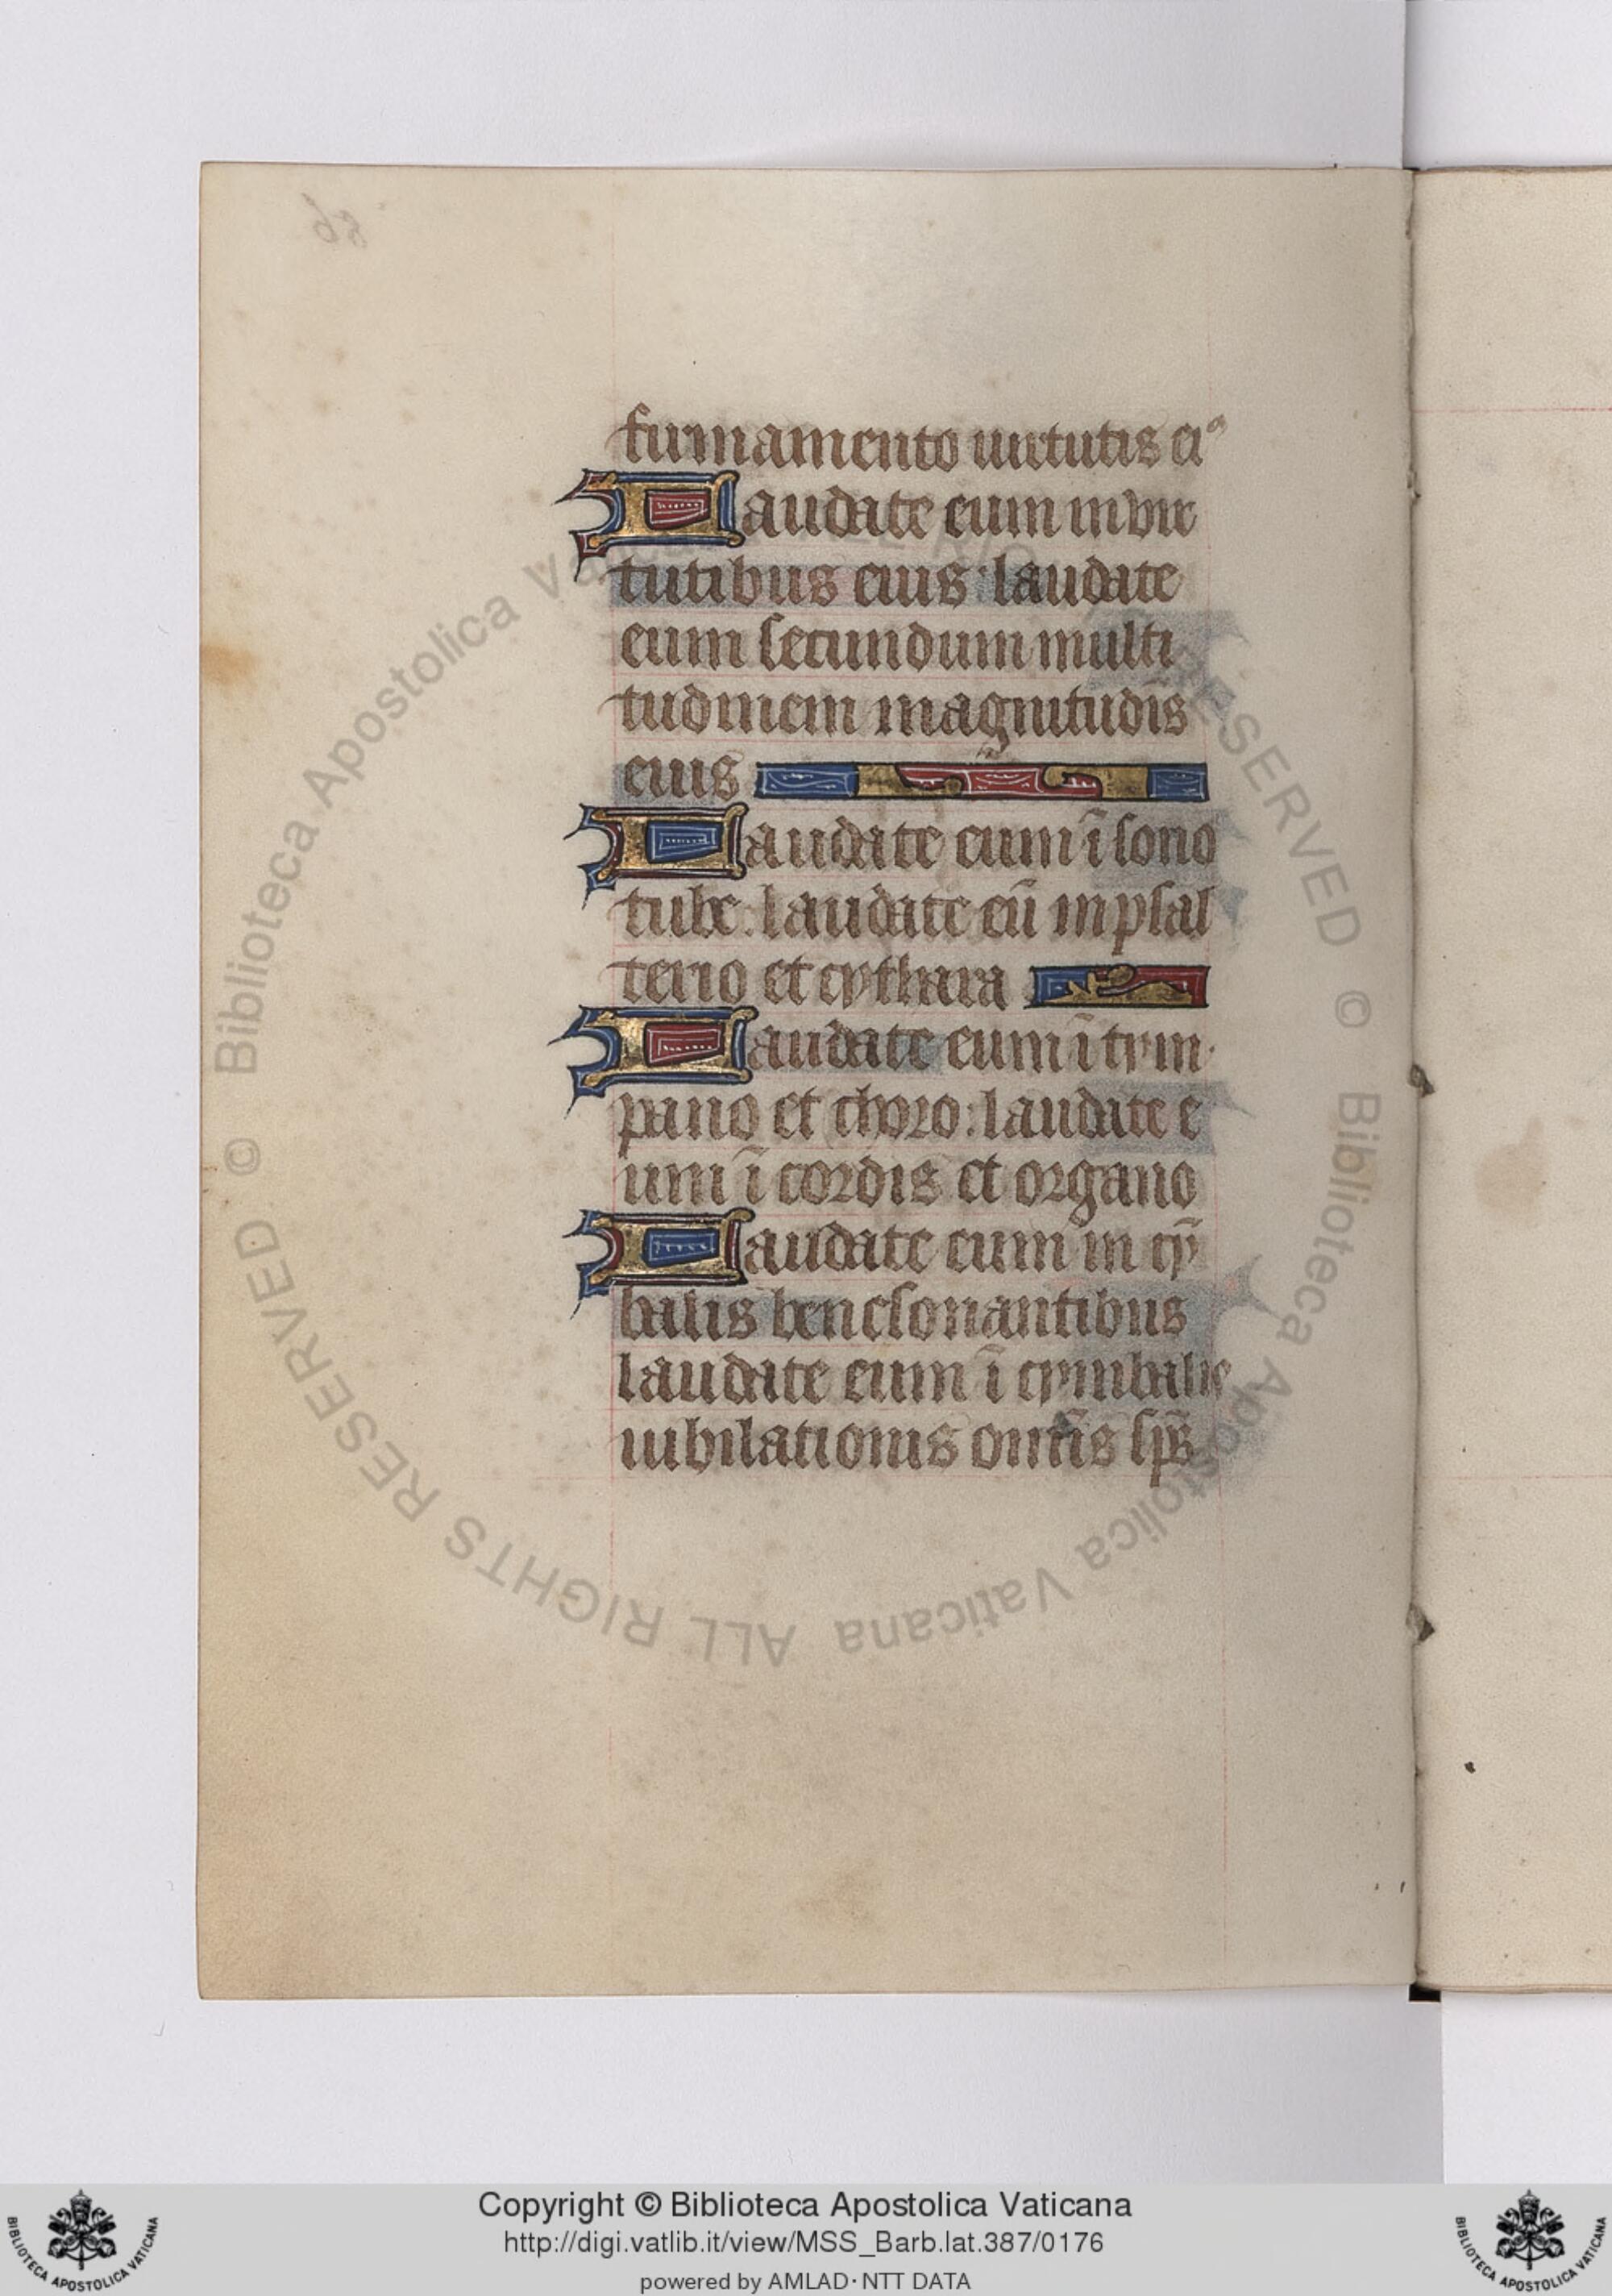 firmamento uirtutis ei⁹
Laudate eum in vir
tutibus eius· laudate
eum secundum multi
tudinem magnitudīs
eius
Laudate eum ī sono
tube: laudate eū in psal
terio et cythara
Laudate eum ī tym
pano et choro: laudate e
um ī cordis et organo
Laudate eum in cȳ
balis benesonantibus
laudate eum ī cymbalis
iubilationis omīs sp̄s
© Biblioteca Apostolica Vaticana ALL RIGHTS RESERVED © Biblioteca Apostolica Vaticana ALL RIGHTS RESERVED
Copyright © Biblioteca Apostolica Vaticana
http://digi.vatlib.it/view/MSS_Barb.lat.387/0176
powered by AMLAD·NTT DATA
BIBLIOTECA APOSTOLICA VATICANA
BIBLIOTECA APOSTOLICA VATICANA